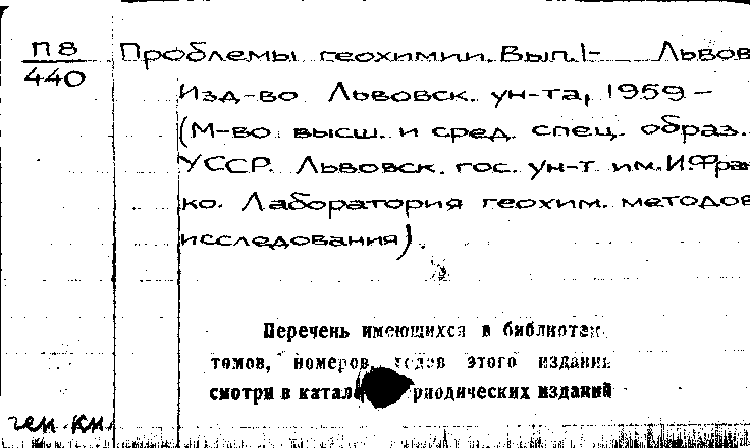 П8
440
Проблемы геохимии. Вып. 1- Львов
Изд-во Львовск. ун-та, 1959 –
(М-во высш. и сред. спец. образ.
УССР. Львовск. гос. ун-т им. И. Фран
ко. Лаборатория геохим. методов
исследования).
Перечень имеющихся в библиотек
томов, номеров, годов этого издания
смотри в катал риодических изданий
ген. кн.